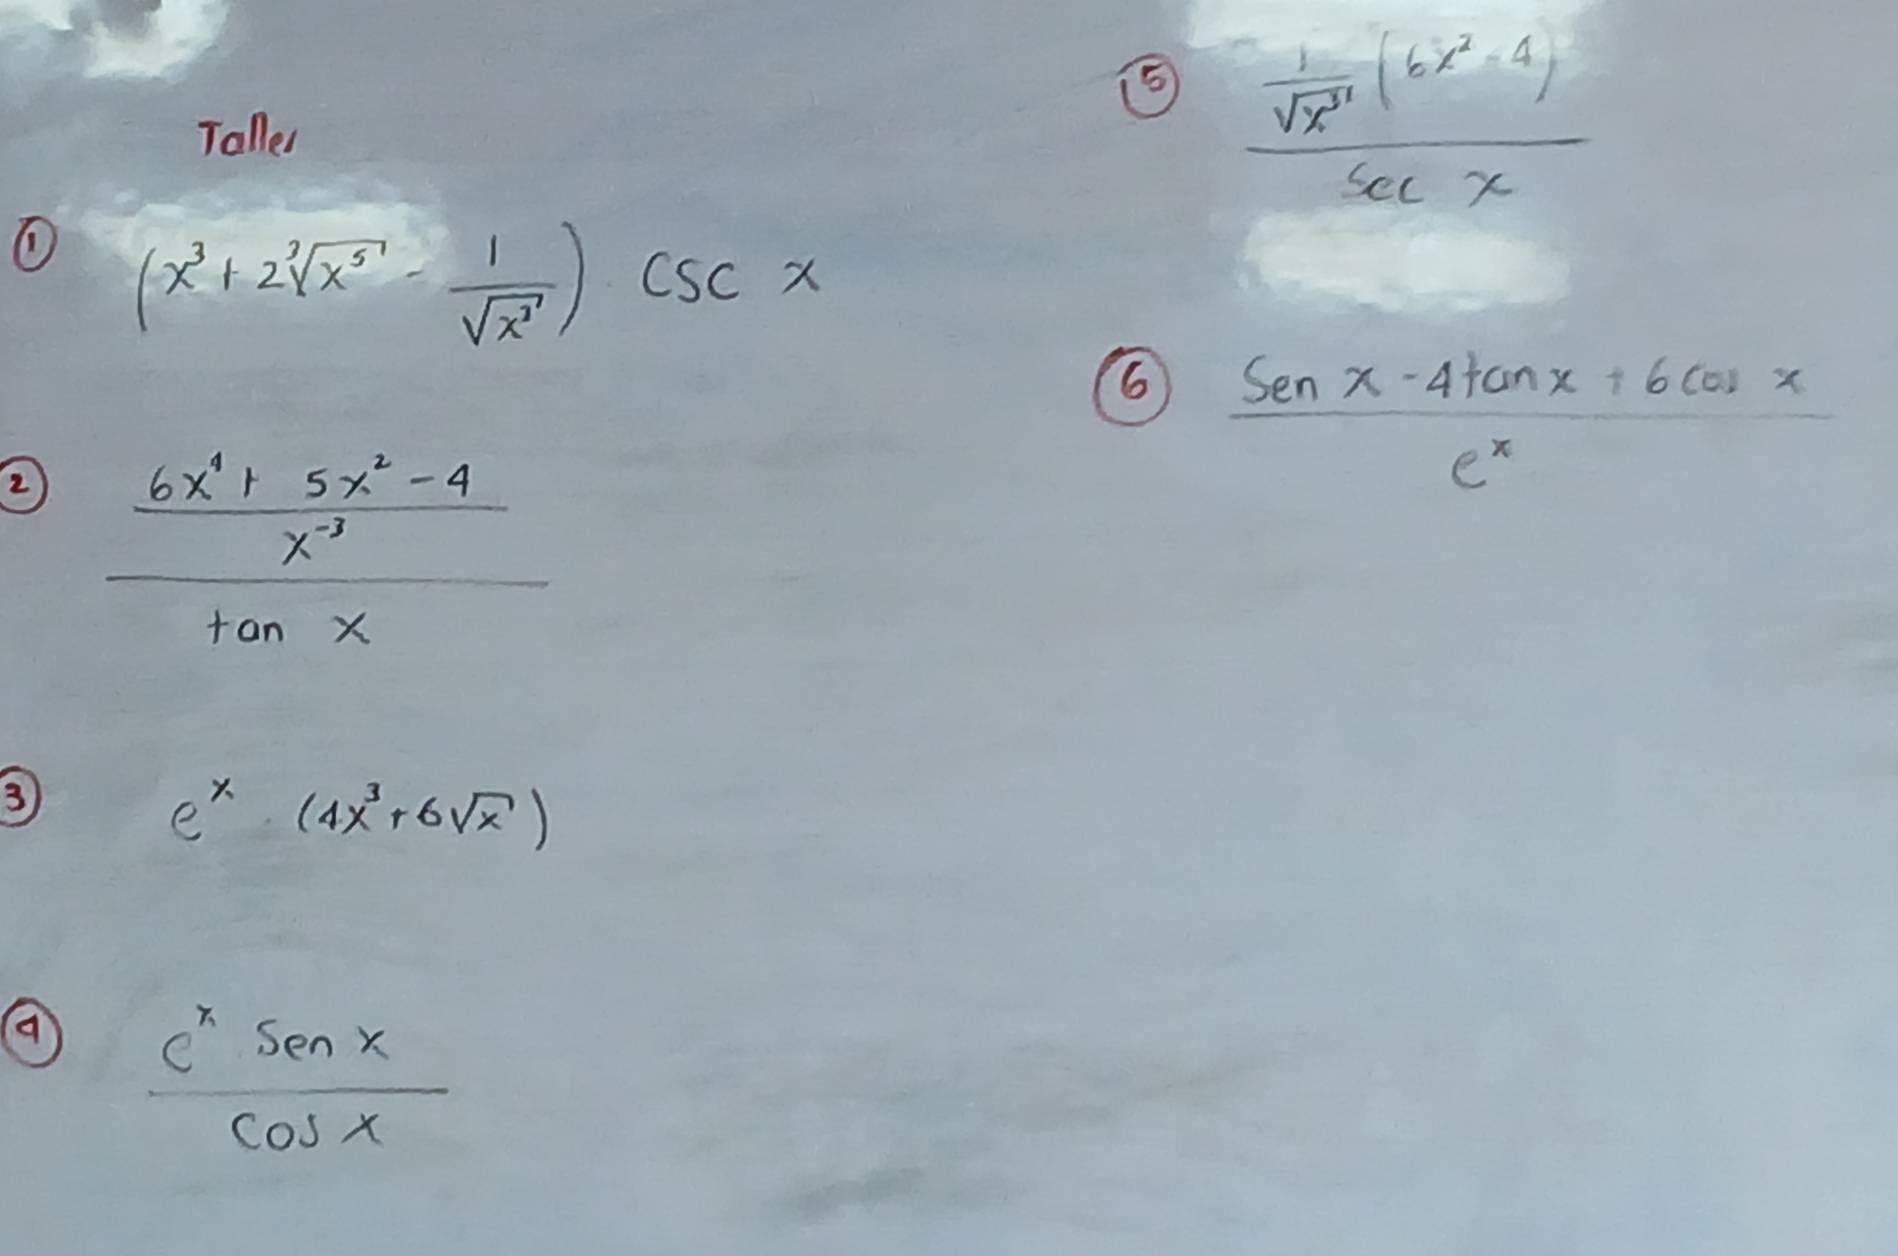 Taller
① (x³ + 2∛x⁵ - 1/√x³) · csc x
② ((6x⁴ + 5x² - 4)/x⁻³)/tan x
③ eˣ · (4x³ + 6√x)
④ (eˣ · Sen x)/cos x
⑤ (1/√x³ (6x² - 4))/Sec x
⑥ (Sen x - 4tan x + 6cos x)/eˣ